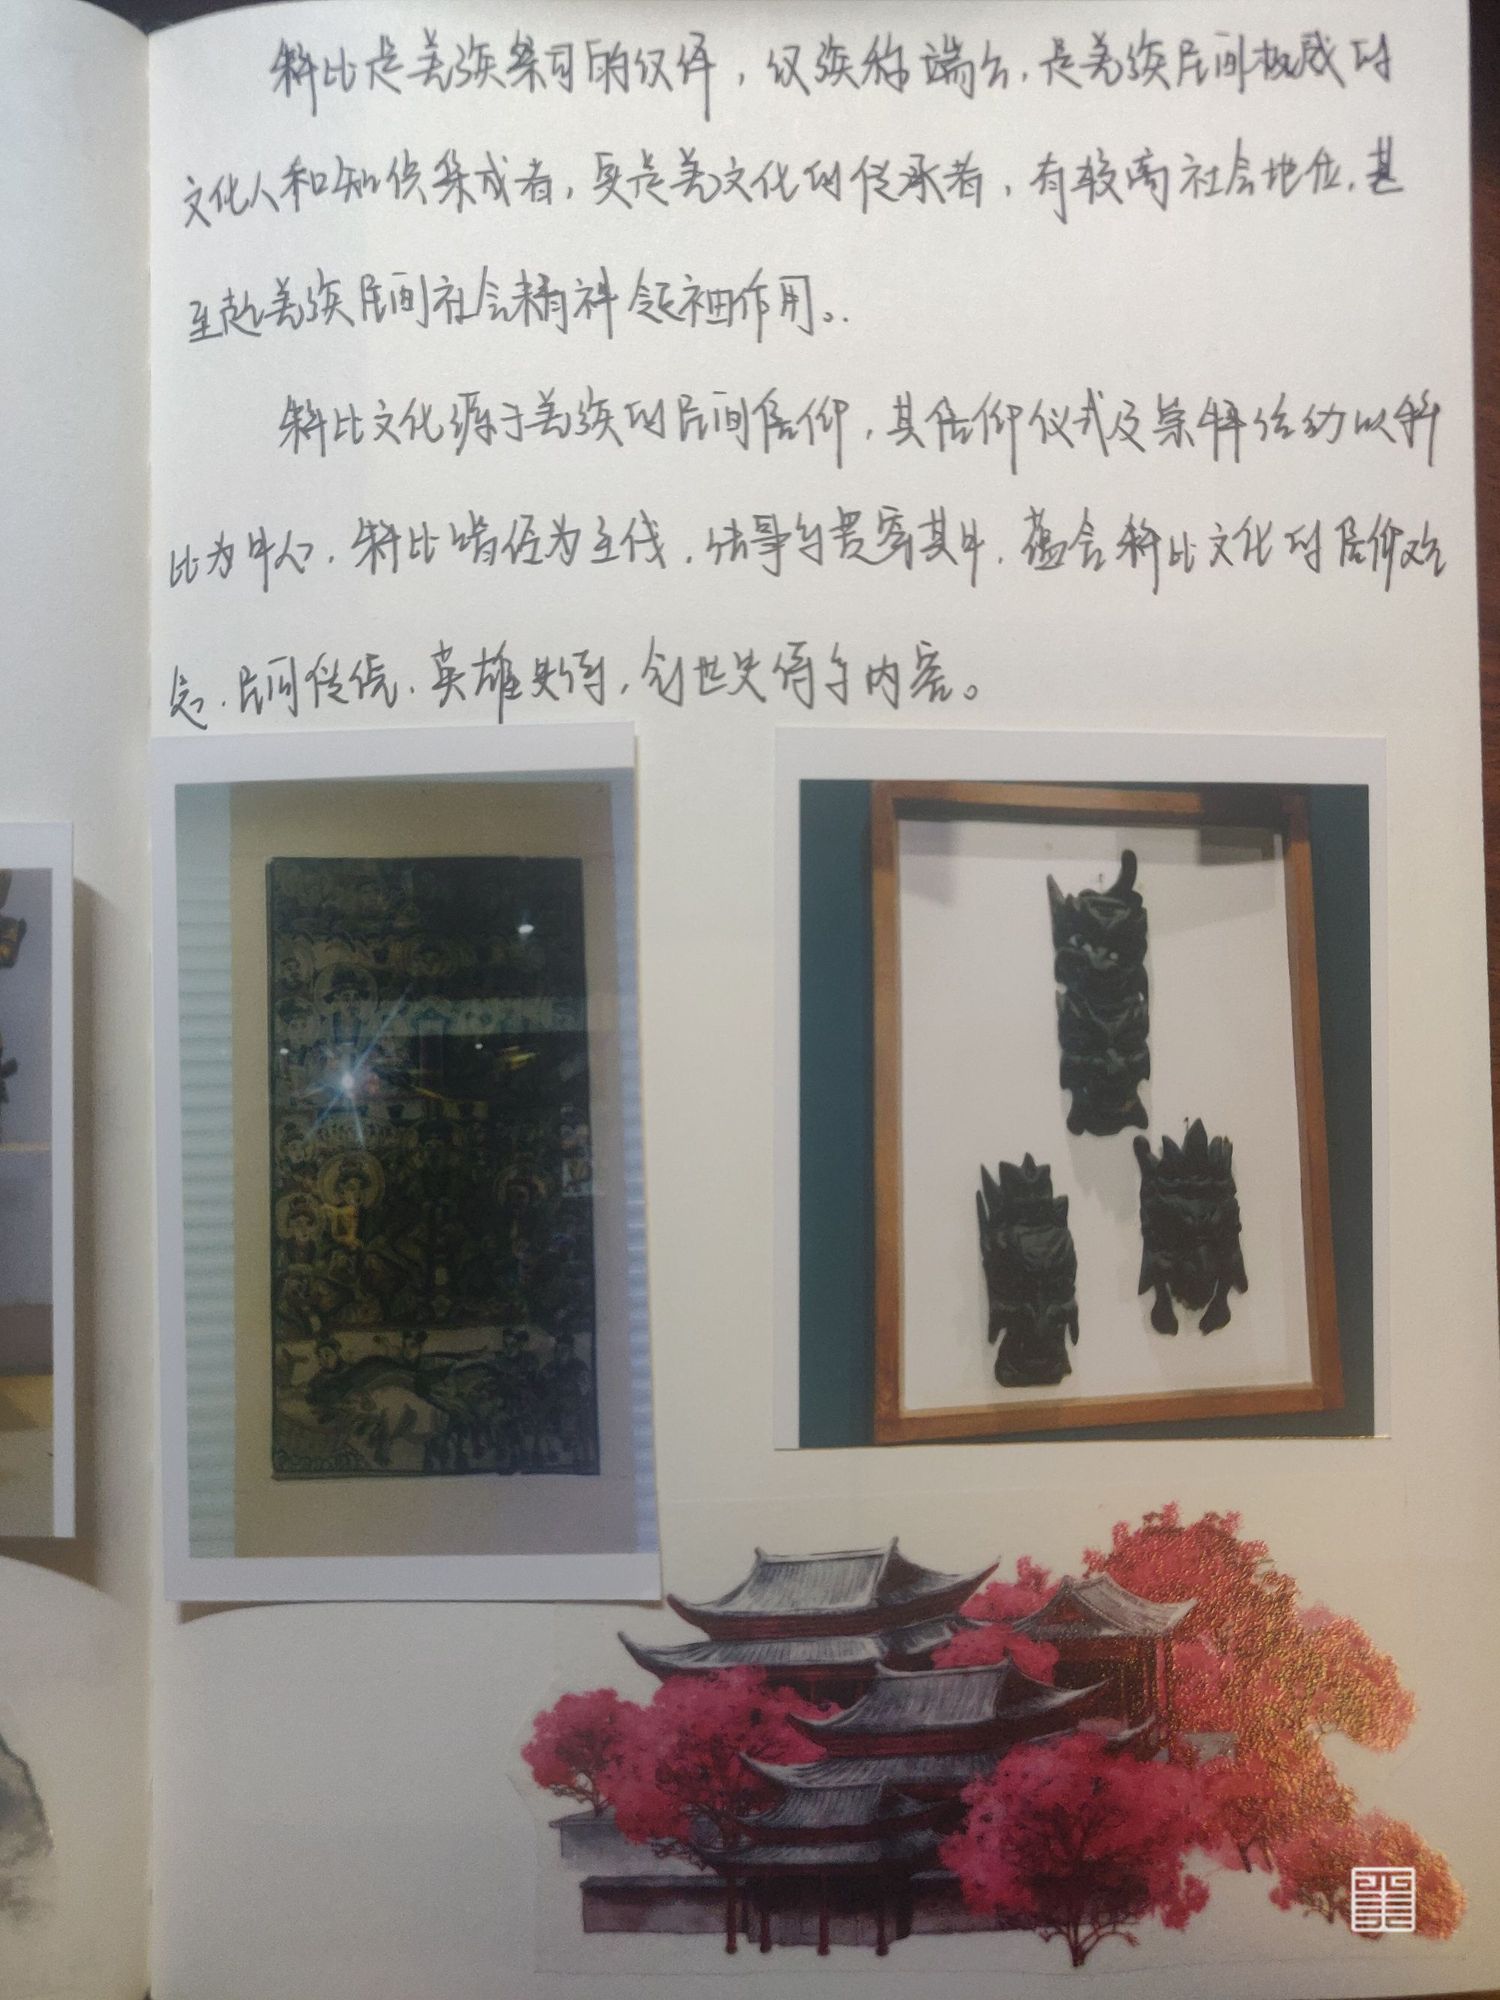 释比是羌族祭司的汉译，汉族称端公，是羌族民间权威的
文化人和知识集成者，更是羌文化的传承者，有较高社会地位，甚
至起羌族民间社会精神领袖作用。
释比文化源于羌族的民间信仰，其信仰仪式及祭祀活动以释
比为中心，释比唱经为主线，法器等贯穿其中，蕴含释比文化的信仰观
念，民间传统，英雄史诗，创世史诗等内容。